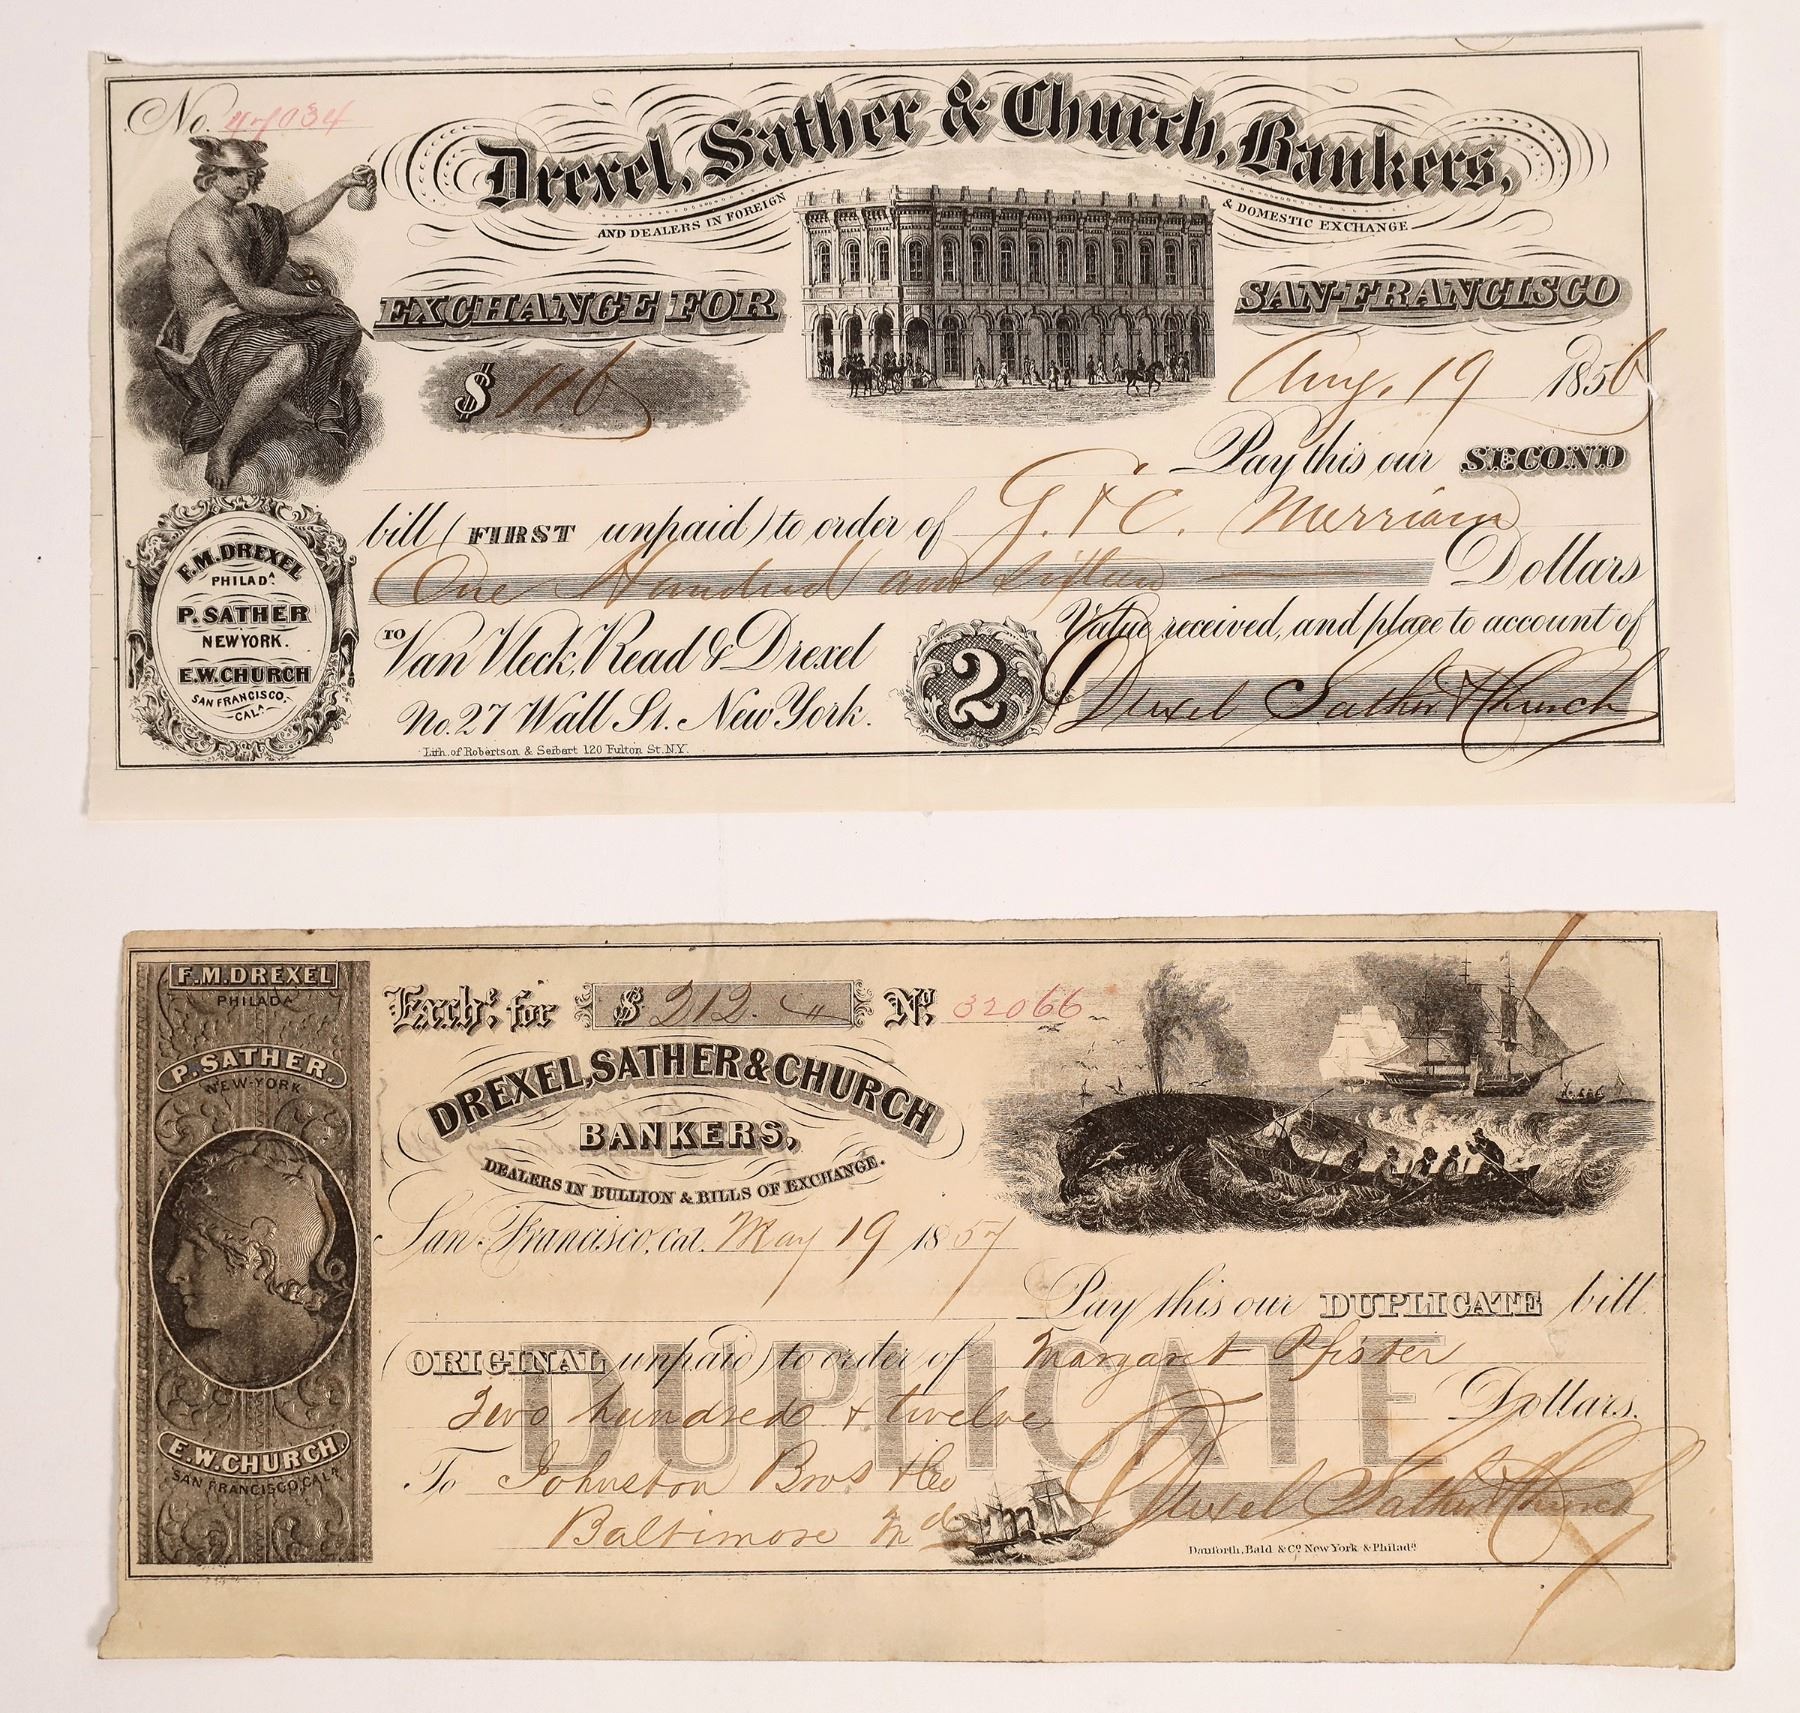 No. 47034
Drexel, Sather & Church, Bankers,
AND DEALERS IN FOREIGN & DOMESTIC EXCHANGE
EXCHANGE FOR SAN-FRANCISCO
$ 116 Aug. 19 1856
Pay this our SECOND
bill (FIRST unpaid) to order of G. & C. Merriam
One Hundred and Sixteen Dollars
Value received, and place to account of
TO Van Vleck, Read & Drexel
No. 27 Wall St. New York.
2
Drexel Sather & Church
F.M. DREXEL
PHILADA.
P. SATHER
NEW YORK.
E.W. CHURCH
SAN FRANCISCO,
CALA
Lith. of Robertson & Seibert 120 Fulton St. N.Y.
F.M. DREXEL
PHILADA
P. SATHER.
NEW-YORK
E.W. CHURCH.
SAN FRANCISCO, CALA
Exch. for $ 212. No. 32066
DREXEL, SATHER & CHURCH
BANKERS,
DEALERS IN BULLION & BILLS OF EXCHANGE.
San Francisco, Cal. May 19 1857
Pay this our DUPLICATE bill
(ORIGINAL unpaid) to order of Margaret Pfister
DUPLICATE
Two hundred & twelve Dollars.
To Johnston Bros & Co
Baltimore Md
Drexel Sather & Church
Danforth, Bald & Co. New York & Philada